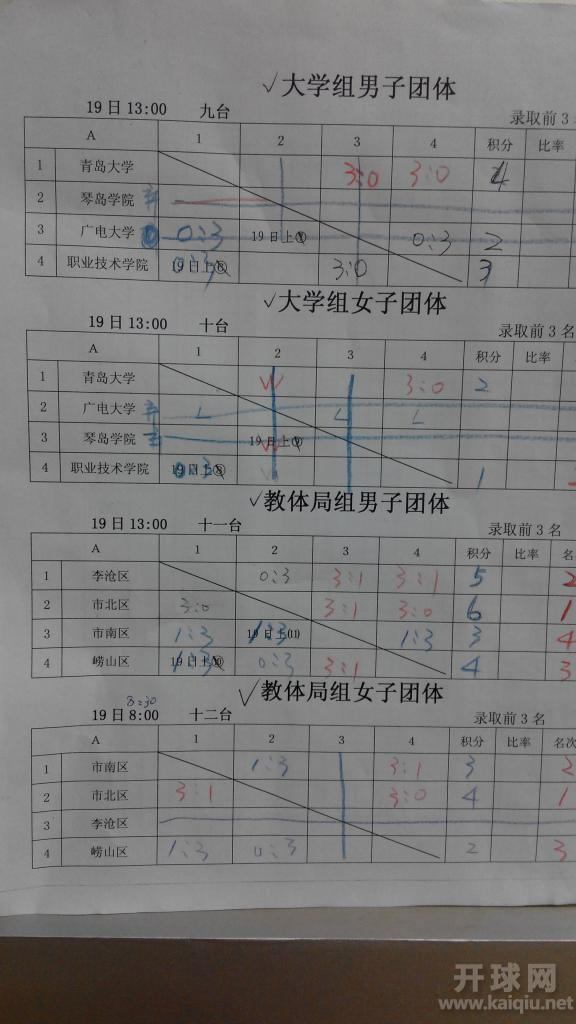 ✓大学组男子团体
19日13:00 九台 录取前3名
A 1 2 3 4 积分 比率
1 青岛大学 3:0 3:0 4
2 琴岛学院 弃
3 广电大学 0:3 19日上⑨ 0:3 2
4 职业技术学院 0:3 3:0 3
✓大学组女子团体
19日13:00 十台 录取前3名
A 1 2 3 4 积分 比率
1 青岛大学 W 3:0 2
2 广电大学 弃 L L L
3 琴岛学院 弃 19日上
4 职业技术学院 0:3 1
✓教体局组男子团体
19日13:00 十一台 录取前3名
A 1 2 3 4 积分 比率 名
1 李沧区 0:3 3:1 3:1 5 2
2 市北区 3:0 3:1 3:0 6 1
3 市南区 1:3 1:3 19日上⑾ 1:3 3 4
4 崂山区 1:3 19日上⑩ 0:3 3:1 4 3
8:30
✓教体局组女子团体
19日8:00 十二台 录取前3名
A 1 2 3 4 积分 比率 名次
1 市南区 1:3 3:1 3 2
2 市北区 3:1 3:0 4 1
3 李沧区
4 崂山区 1:3 0:3 2 3
开球网
www.kaiqiu.net